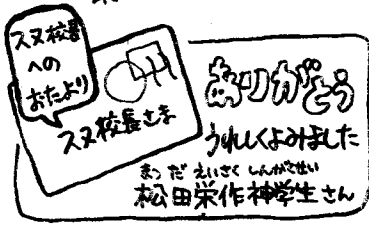 スヌ校長
への
おたより
スヌ校長さま
ありがとう
うれしくよみました
まつだ えいさく しんがくせい
松田栄作神学生さん